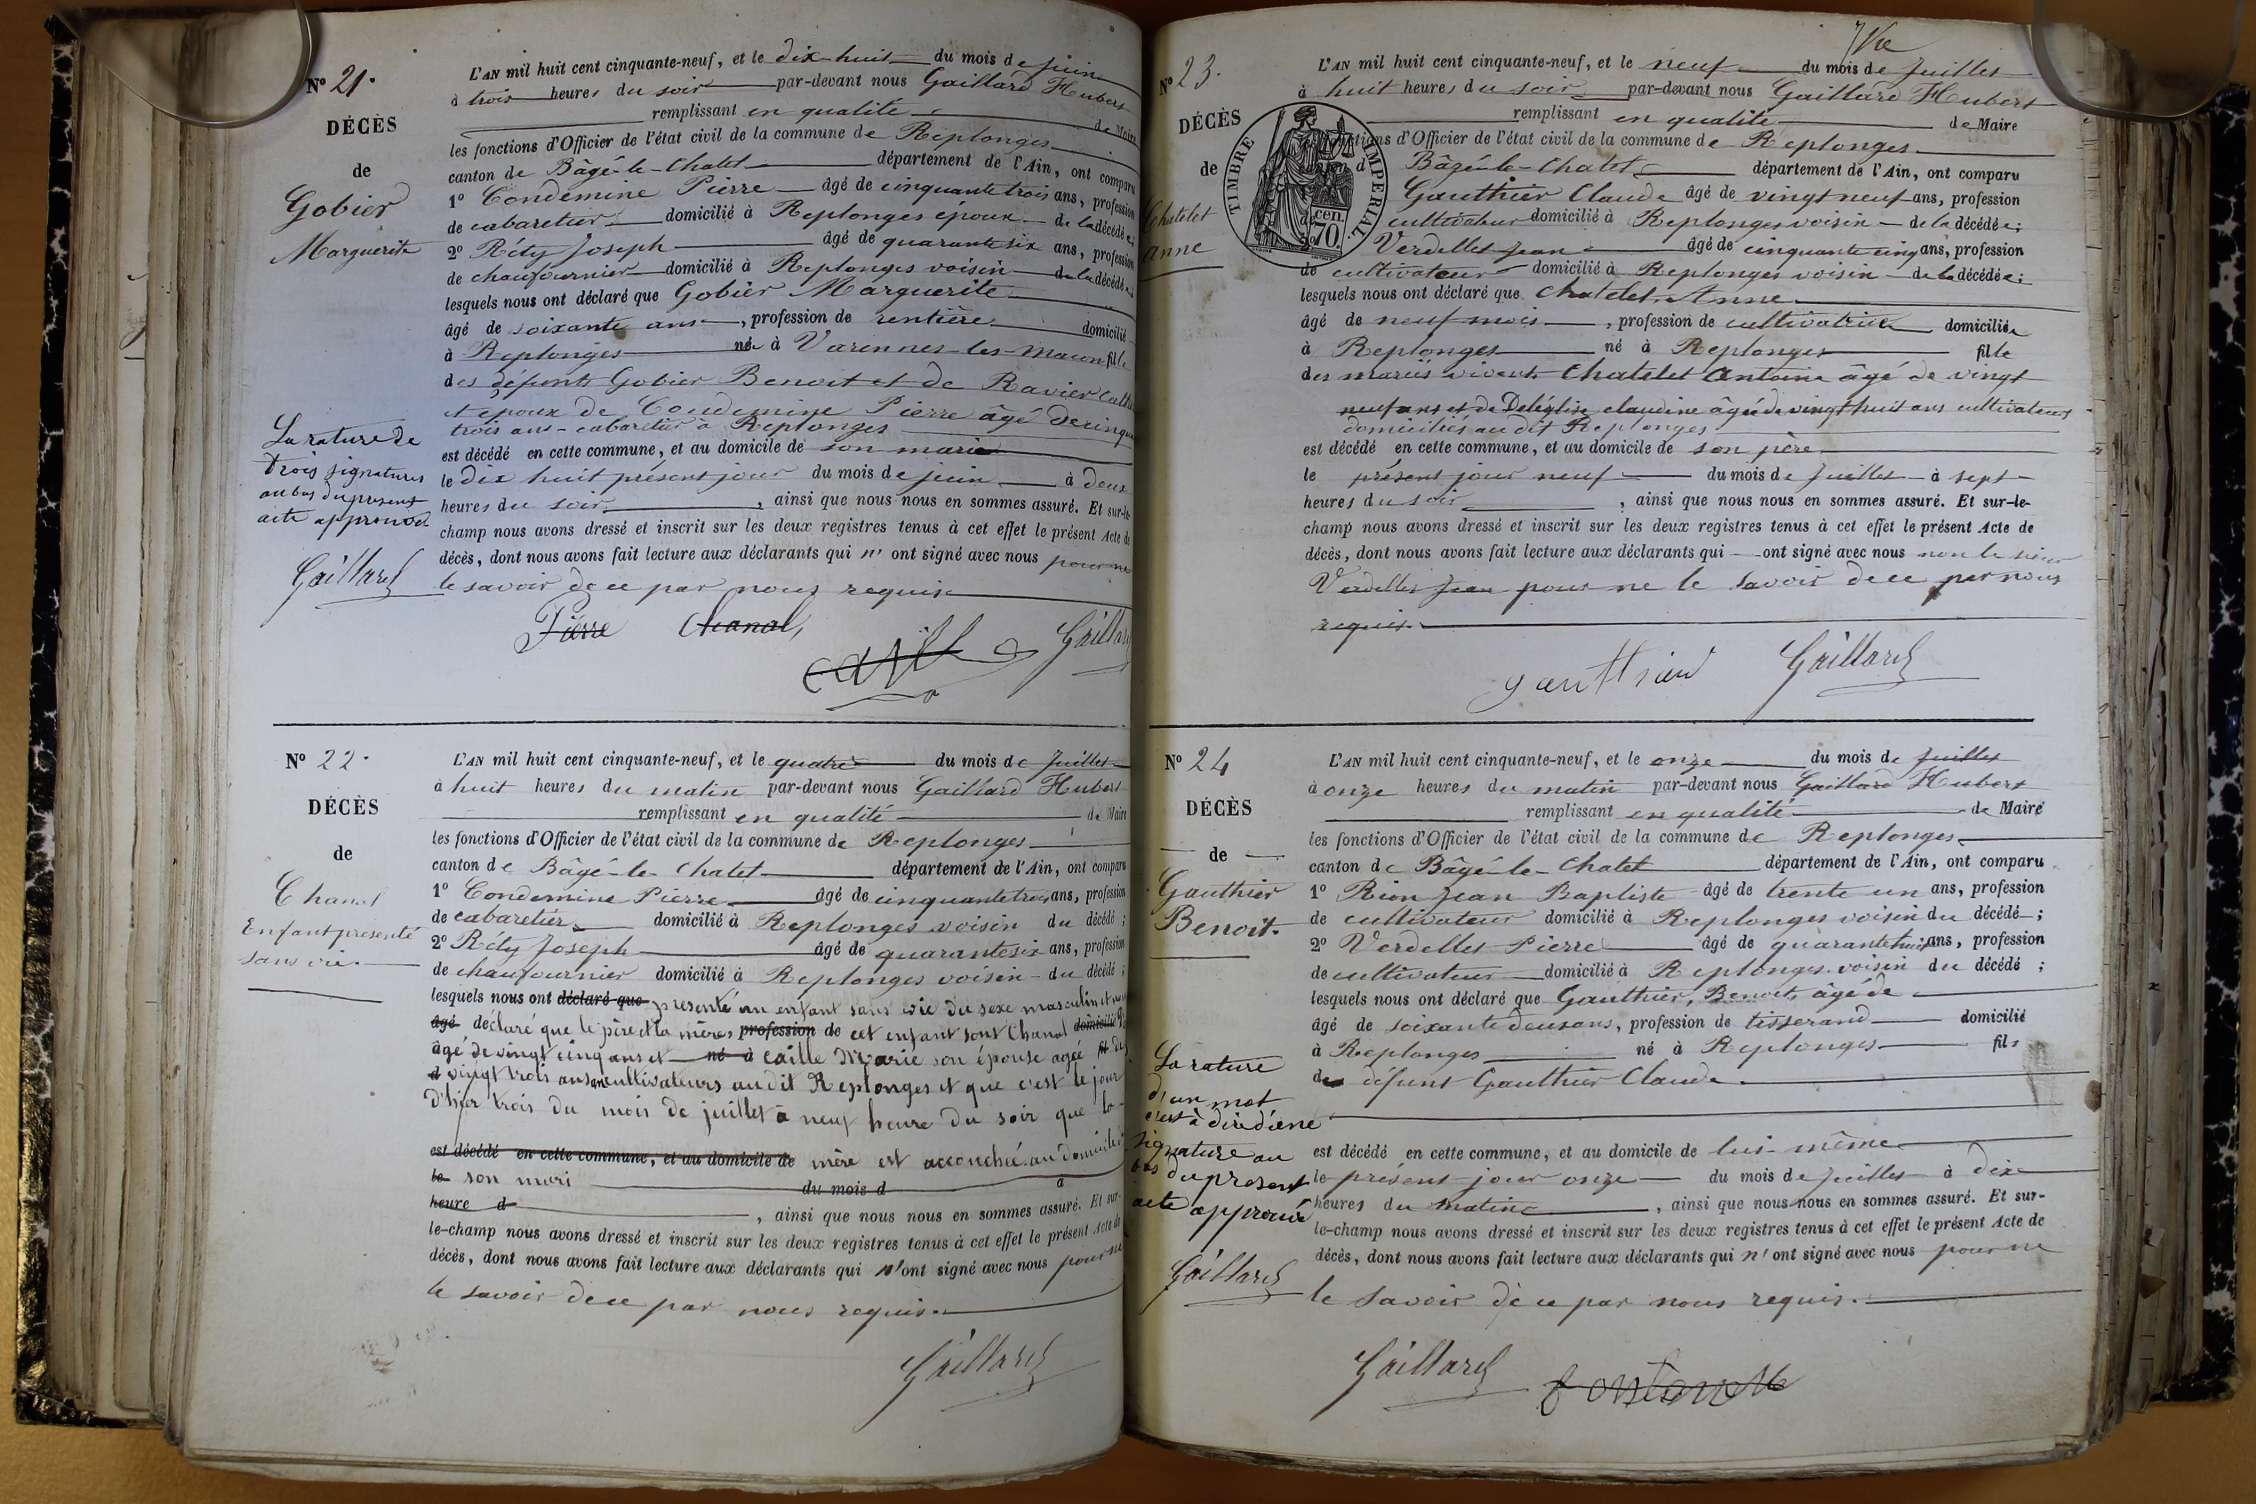 N° 21.
DÉCÈS
de
Gobier
Marguerite
La rature de
trois signatures
au bas du present
acte approuvé
Gaillard
L'AN mil huit cent cinquante-neuf, et le dix-huit du mois de juin
à trois heures du soir par-devant nous Gaillard Hubert
remplissant en qualité de Maire
les fonctions d'Officier de l'état civil de la commune de Replonges
canton de Bâgé-le-Chatel département de l'Ain, ont comparu
1° Condemine Pierre âgé de cinquante trois ans, profession
de cabaretier domicilié à Replonges époux de la décédée;
2° Réty Joseph âgé de quarante six ans, profession
de chaufournier domicilié à Replonges voisin de la décédée
lesquels nous ont déclaré que Gobier Marguerite
âgé de soixante ans, profession de rentière domicilié
à Replonges née à Varennes-les-Macon fille
des défunts Gobier Benoit et de Ravier
et époux de Condemine Pierre âgé de cinqu
trois ans - cabaretier à Replonges
est décédé en cette commune, et au domicile de son mari
le dix huit présent jour du mois de juin à deux
heures du soir, ainsi que nous nous en sommes assuré. Et sur-le-
champ nous avons dressé et inscrit sur les deux registres tenus à cet effet le présent Acte de
décès, dont nous avons fait lecture aux déclarants qui n'ont signé avec nous pour ne
le savoir de ce par nous requis
Pierre Chanal,
Gaillard
N° 22.
DÉCÈS
de
Chanal
Enfant presenté
sans vie.
L'AN mil huit cent cinquante-neuf, et le quatre du mois de Juillet
à huit heures du matin par-devant nous Gaillard Hubert
remplissant en qualité de Maire
les fonctions d'Officier de l'état civil de la commune de Replonges
canton de Bâgé-le-Chatel département de l'Ain, ont comparu
1° Condemine Pierre âgé de cinquante trois ans, profession
de cabaretier domicilié à Replonges voisin du décédé;
2° Réty Joseph âgé de quarante six ans, profession
de chaufournier domicilié à Replonges voisin du décédé;
lesquels nous ont déclaré que presenté un enfant sans vie du sexe masculin et
âgé declaré que le père et la mères profession de cet enfant sont Chanal domicilié
âgé de vingt cinq ans et né à caille Marie son épouse agée fil de
à vingt trois ans cultivateurs audit Replonges et que c'est le jour
d'hier trois du mois de juillet à neuf heure du soir que la
est décédé en cette commune, et au domicile de mère est accouchée au domicile
le son mari du mois d à
heure d, ainsi que nous nous en sommes assuré. Et sur-
le-champ nous avons dressé et inscrit sur les deux registres tenus à cet effet le présent Acte de
décès, dont nous avons fait lecture aux déclarants qui n'ont signé avec nous pour ne
le savoir de ce par nous requis.
Gaillard
N° 23.
DÉCÈS
de
Chatelet
Anne
TIMBRE IMPERIAL
cen.
70.
L'AN mil huit cent cinquante-neuf, et le neuf du mois de Juillet
à huit heures du soir par-devant nous Gaillard Hubert
remplissant en qualité de Maire
fonctions d'Officier de l'état civil de la commune de Replonges
Bâgé-le-Chatel département de l'Ain, ont comparu
Gauthier Claude âgé de vingt neuf ans, profession
cultivateur domicilié à Replonges voisin de la décédée;
Verdellet Jean âgé de cinquante cinq ans, profession
de cultivateur domicilié à Replonges voisin de la décédée;
lesquels nous ont déclaré que Chatelet Anne
âgé de neuf mois, profession de cultivatrice domiciliée
à Replonges né à Replonges fille
des mariés vivents Chatelet Antoine âgé de vingt
neuf ans et de Deléglise claudine âgée de vingt huit ans cultivateurs
domiciliés au dit Replonges
est décédé en cette commune, et au domicile de son père
le présent jour neuf du mois de Juillet à sept
heures du soir, ainsi que nous nous en sommes assuré. Et sur-le-
champ nous avons dressé et inscrit sur les deux registres tenus à cet effet le présent Acte de
décès, dont nous avons fait lecture aux déclarants qui ont signé avec nous non le sieur
Verdellet Jean pour ne le savoir de ce par nous
requis.
gautthier Gaillard
N° 24
DÉCÈS
de
Gauthier
Benoit.
La rature
d'un mot
c'est à dire d'une
signature au
bas du present
acte approuvé
Gaillard
L'AN mil huit cent cinquante-neuf, et le onze du mois de Juillet
à onze heures du matin par-devant nous Gaillard Hubert
remplissant en qualité de Maire
les fonctions d'Officier de l'état civil de la commune de Replonges
canton de Bâgé-le-Chatel département de l'Ain, ont comparu
1° Rion Jean Baptiste âgé de trente un ans, profession
de cultivateur domicilié à Replonges voisin du décédé;
2° Verdellet Pierre âgé de quarante huit ans, profession
de cultivateur domicilié à Replonges voisin du décédé;
lesquels nous ont déclaré que Gauthier, Benoit, âgé de
âgé de soixante deux ans, profession de tisserand domicilié
à Replonges né à Replonges fils
de défunt Gauthier Claude
est décédé en cette commune, et au domicile de lui-même
le présent jour onze du mois de Juillet à dix
heures du matin, ainsi que nous nous en sommes assuré. Et sur-
le-champ nous avons dressé et inscrit sur les deux registres tenus à cet effet le présent Acte de
décès, dont nous avons fait lecture aux déclarants qui n'ont signé avec nous pour ne
le savoir de ce par nous requis.
Gaillard